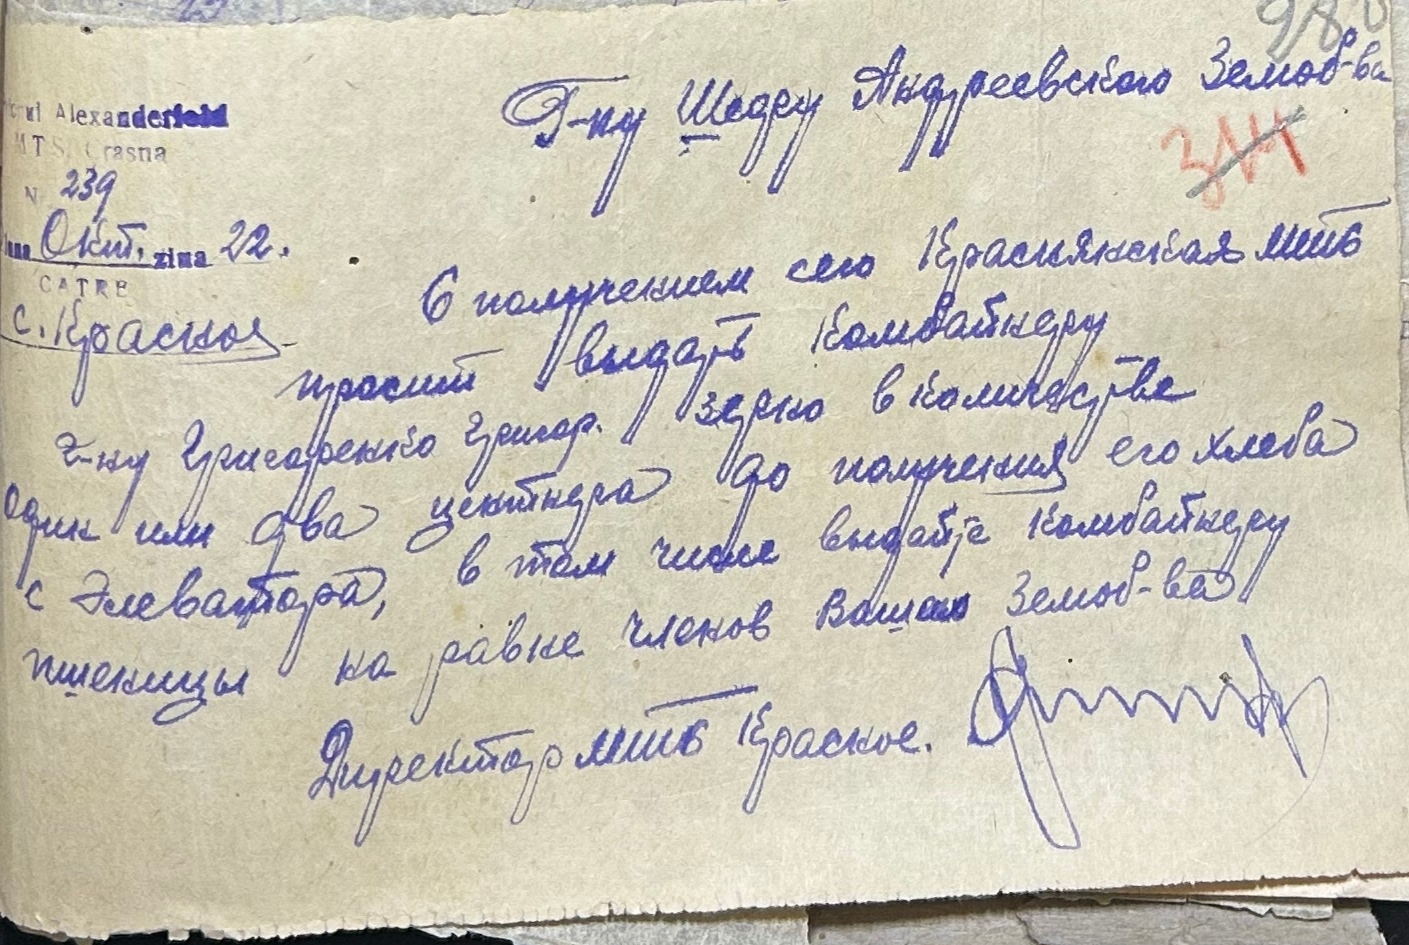 980
Г-ну Шефу Андреевского Земоб-ва
314
Alexanderfeld
MTS. Crasna
№ 239
Окт. ziua 22.
CATRE
с. Красное
С получением сего Краснянская МТС
просит выдать Комбайнеру
г-ну Григоренко Григор. зерно в количестве
один или два центнера до получения его хлеба
с Элеватора, в том числе выдайте Комбайнеру
пшеницы на равне членов Вашего Земоб-ва
Директор МТС Красное.